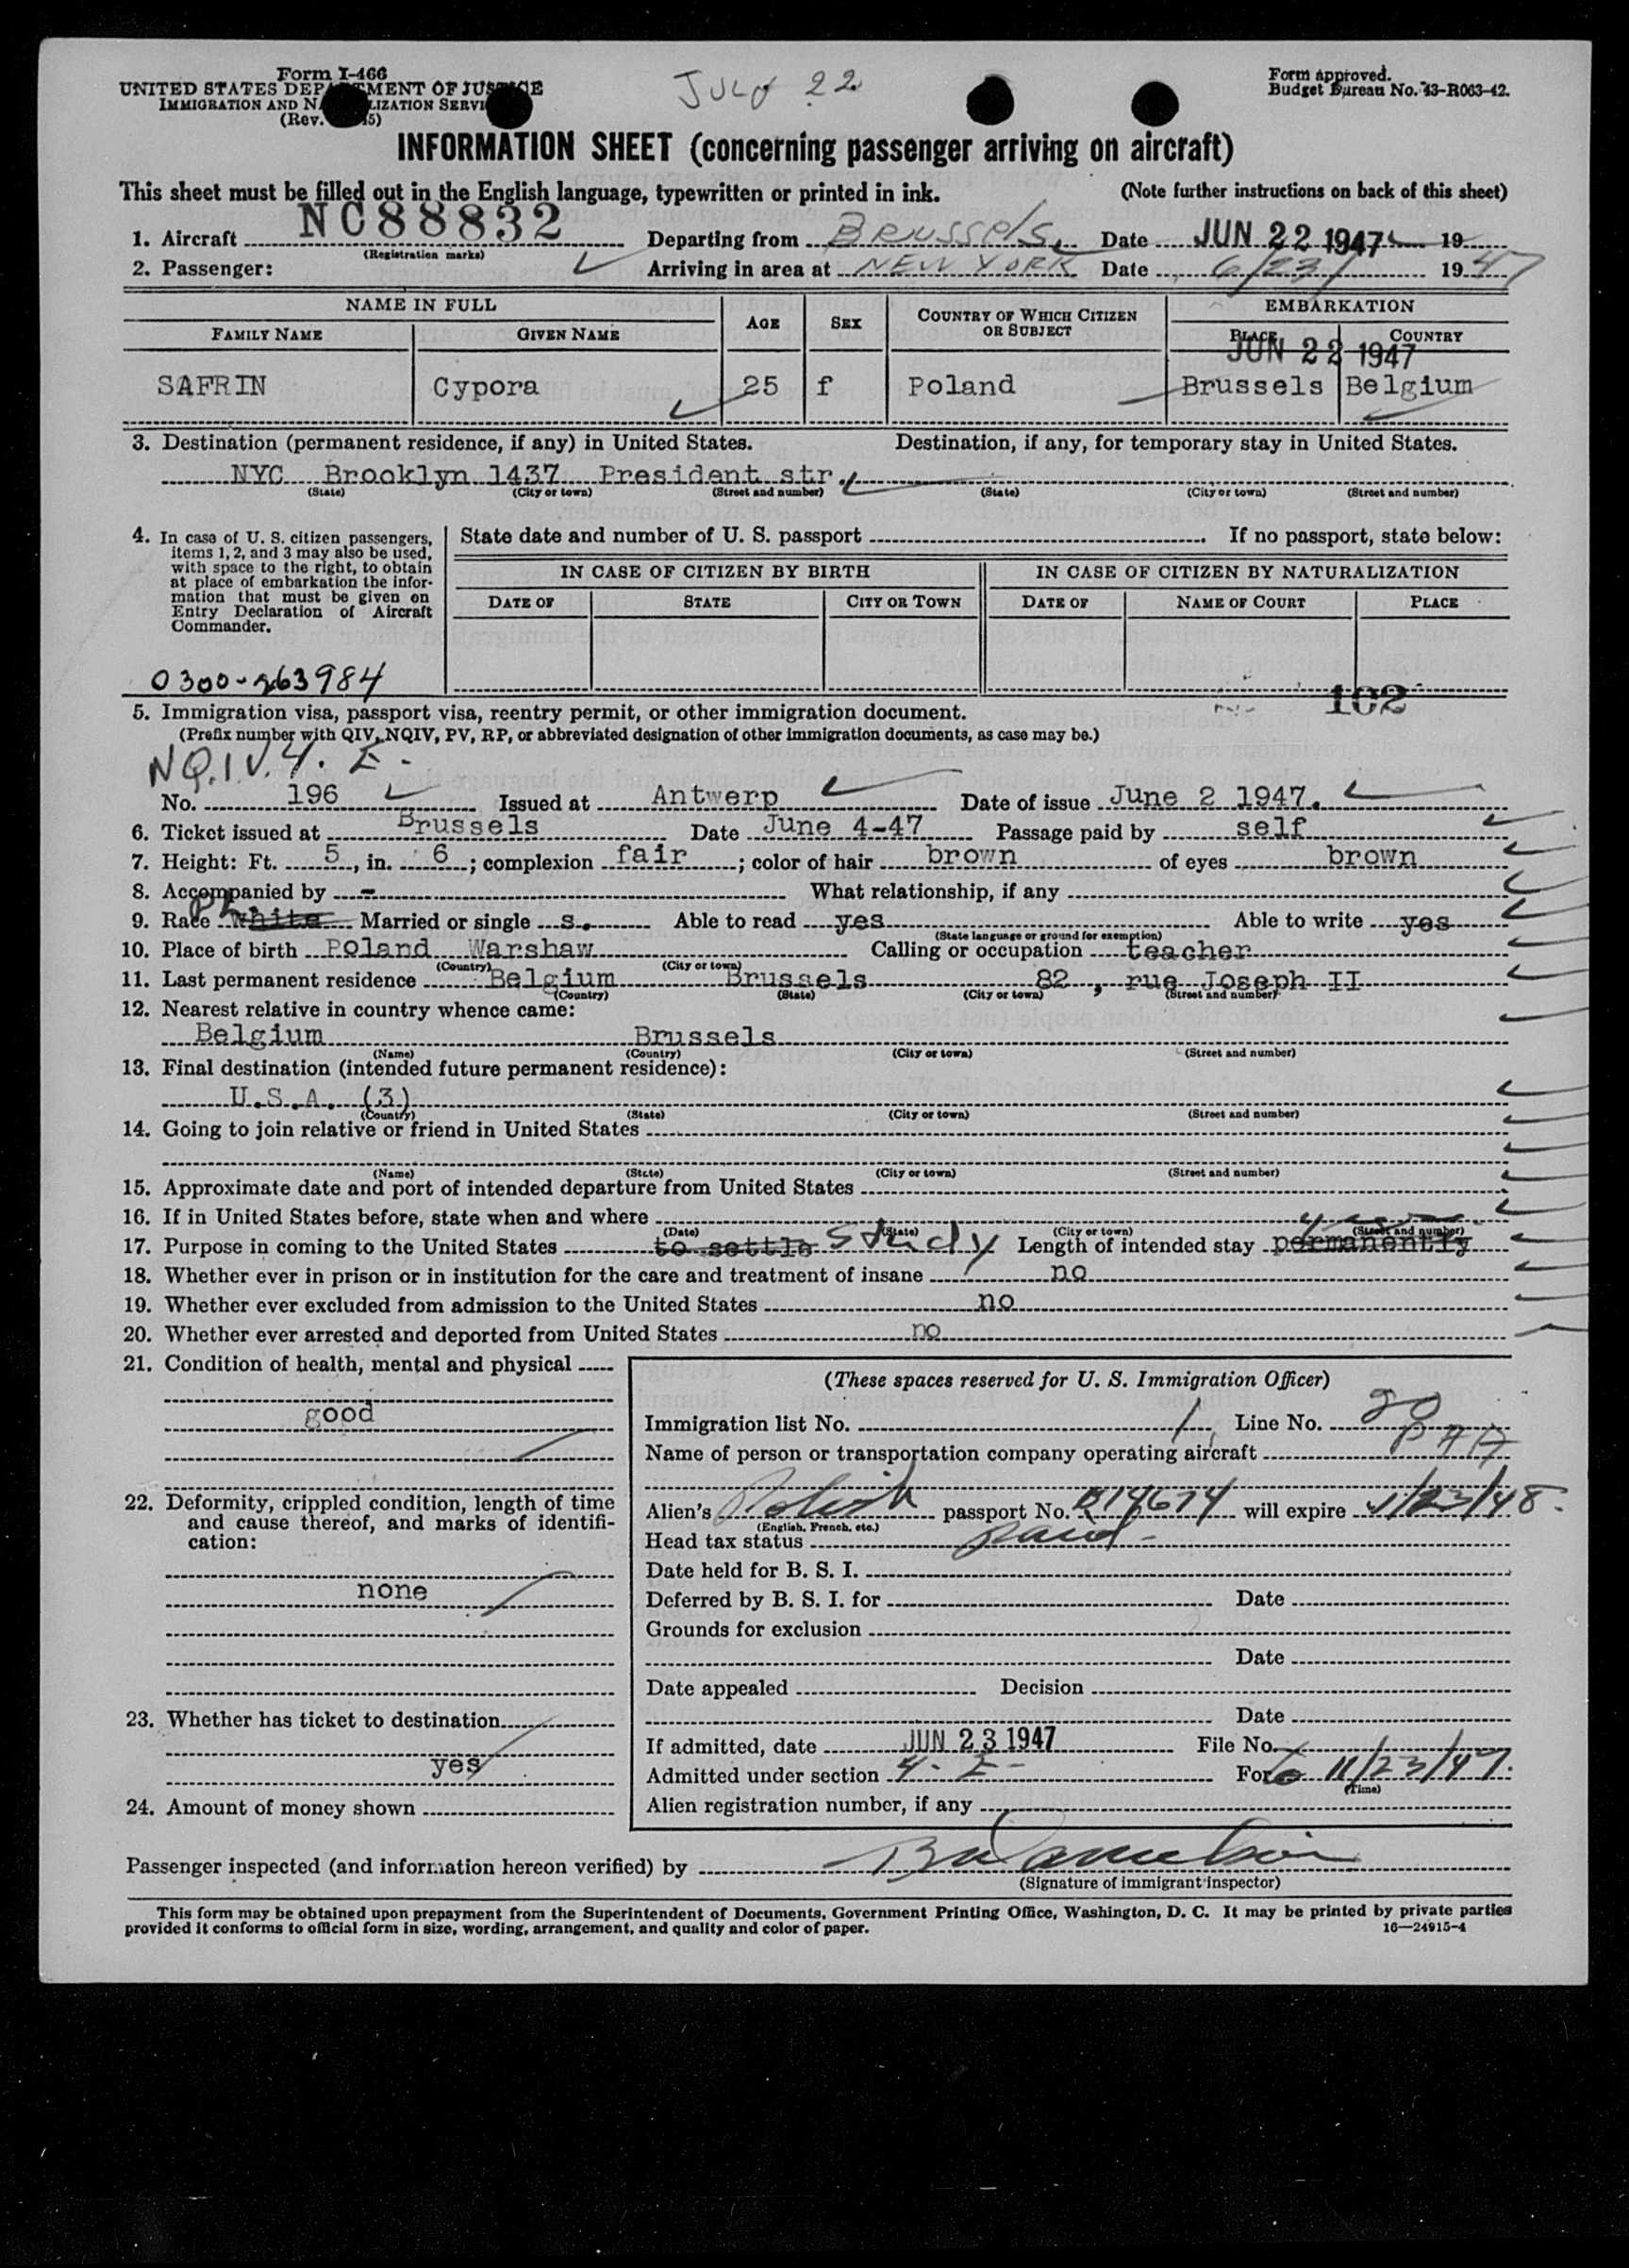 Form I-466
UNITED STATES DEP MENT OF JUS E
IMMIGRATION AND NA LIZATION SERVI
(Rev. 5)
July 22
Form approved.
Budget Bureau No. 43-R063-42.
INFORMATION SHEET (concerning passenger arriving on aircraft)
This sheet must be filled out in the English language, typewritten or printed in ink. (Note further instructions on back of this sheet)
1. Aircraft NC88832 Departing from Brussels, Date JUN 22 1947 19
(Registration marks)
2. Passenger: Arriving in area at NEW YORK Date 6/23/ 1947
NAME IN FULL AGE SEX COUNTRY OF WHICH CITIZEN OR SUBJECT EMBARKATION
FAMILY NAME GIVEN NAME PLACE COUNTRY
JUN 22 1947
SAFRIN Cypora 25 f Poland Brussels Belgium
3. Destination (permanent residence, if any) in United States. Destination, if any, for temporary stay in United States.
NYC Brooklyn 1437 President str.
(State) (City or town) (Street and number) (State) (City or town) (Street and number)
4. In case of U. S. citizen passengers, items 1, 2, and 3 may also be used, with space to the right, to obtain at place of embarkation the information that must be given on Entry Declaration of Aircraft Commander.
State date and number of U. S. passport If no passport, state below:
IN CASE OF CITIZEN BY BIRTH IN CASE OF CITIZEN BY NATURALIZATION
DATE OF STATE CITY OR TOWN DATE OF NAME OF COURT PLACE
0300-263984
102
5. Immigration visa, passport visa, reentry permit, or other immigration document.
(Prefix number with QIV, NQIV, PV, RP, or abbreviated designation of other immigration documents, as case may be.)
NQ.I.V. 4. E.
No. 196 Issued at Antwerp Date of issue June 2 1947.
6. Ticket issued at Brussels Date June 4-47 Passage paid by self
7. Height: Ft. 5, in. 6; complexion fair; color of hair brown of eyes brown
8. Accompanied by - What relationship, if any
9. Race white Married or single s. Able to read yes Able to write yes
(State language or ground for exemption)
10. Place of birth Poland Warshaw Calling or occupation teacher
(Country) (City or town)
11. Last permanent residence Belgium Brussels 82, rue Joseph II
(Country) (State) (City or town) (Street and number)
12. Nearest relative in country whence came:
Belgium Brussels
(Name) (Country) (City or town) (Street and number)
13. Final destination (intended future permanent residence):
U.S.A. (3)
(Country) (State) (City or town) (Street and number)
14. Going to join relative or friend in United States
(Name) (State) (City or town) (Street and number)
15. Approximate date and port of intended departure from United States
16. If in United States before, state when and where
(Date) (State) (City or town) (Street and number)
17. Purpose in coming to the United States to settle study Length of intended stay permanently
18. Whether ever in prison or in institution for the care and treatment of insane no
19. Whether ever excluded from admission to the United States no
20. Whether ever arrested and deported from United States no
21. Condition of health, mental and physical
good
22. Deformity, crippled condition, length of time and cause thereof, and marks of identification:
none
23. Whether has ticket to destination
yes
24. Amount of money shown
(These spaces reserved for U. S. Immigration Officer)
Immigration list No. 1 Line No. 20
Name of person or transportation company operating aircraft PAA
Alien's Polish passport No. will expire
(English, French, etc.)
Head tax status paid
Date held for B. S. I.
Deferred by B. S. I. for Date
Grounds for exclusion
Date
Date appealed Decision
Date
If admitted, date JUN 23 1947 File No.
Admitted under section 4-E- For to 11/23/47.
(Time)
Alien registration number, if any
Passenger inspected (and information hereon verified) by
(Signature of immigrant inspector)
This form may be obtained upon prepayment from the Superintendent of Documents, Government Printing Office, Washington, D. C. It may be printed by private parties
provided it conforms to official form in size, wording, arrangement, and quality and color of paper. 16—24915-4